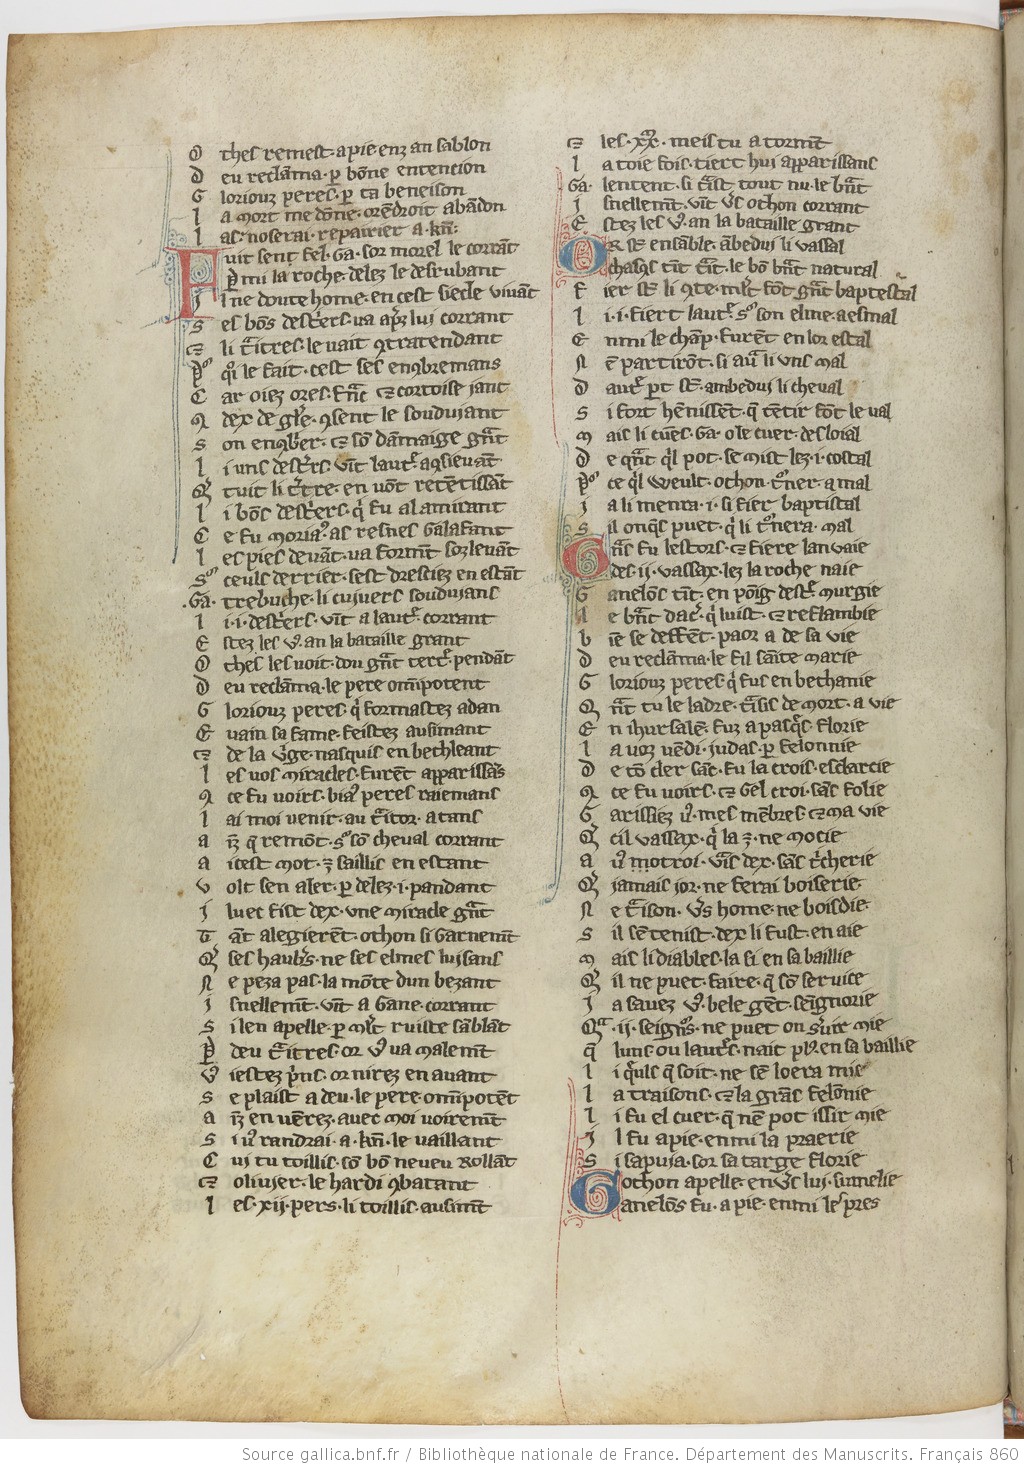 O thes remest · a pie enz an sablon
D eu reclama · ꝑ bōne entencion
G loriouz peres · ꝑ ta beneison
l a mort me dōne · orēdroit abādon
l as · noserai · repairier a · kñ ·
F uit sent fel · Ga · sor morel le corrāt
ꝑmi la roche · delez le desrubant
J l ne doute home · en cest siecle vivāt
S es bōs destͥers · va apͣz lui corrant
⁊ li tͣitres · le vait ꝯtratendant
Pͦ qͥ le fait · cest ses enꝯbremans
C ar oiez ores · frāc ⁊ cortoise jant
q dex de głe · ꝯsent le souduiant
S on enꝯbrer · ⁊ sō dāmaige gͣnt
l i uns destͥers · vīt lautͤ aꝯsievāt
Qͣ tuit li tͤtre · en vōt retētissāt
l i bōs destͥers · qͥ fu al amirant
C e fu moriaꝰ · as resnes Galafant
l es pies devāt · va formt̄ sozlevāt
Sͦ ceuls derrier · sest dresciez en estāt
· Ga · trebuche · li cuivers souduians
l i · i · destͥers · vīt a lautͤ · corrant
E stez les vͦ · an la bataille grant
O thes les voit · dou gͣnt tertͤ · pendāt
D eu reclama · le pere omīpotent
G loriouz peres · qͥ formastez adan
E vain sa fame · feistez ausimant
⁊ de la vͥge · nasquis en bethleant
l es vos miracles · furēt apparissās
q ce fu voirs · biaꝰ peres raiemans
l ai moi venir · au tͣitor · a tans
a ñz q remōt · sͦ sō cheval corrant
a icest mot · ⁊ saillis en estant
V olt sen aler · ꝑ delez · i · pandant
J luec fist dex · vne miracle gͣnt
T āt alegierēt · othon si garnemt̄
Qͣ ses haubͤs · ne ses elmes luisans
N e peza pas · la mōte dun bezant
J snellemt̄ · vīt a Gane · corrant
S i len apelle · ꝑ mͣt ruiste sāblāt
P deu tͣitres · or vͦ va malemt̄
V iestez pͥns · or nirez en avant
S e plaist a deu · le pere omīpotēt
a ñz en vērez · avec moi voiremt̄
S i vͦ randrai · a · kñ · le vaillant
C ui tu toillis · sō bō neveu Rollāt
⁊ olivier · le hardi ꝯbatant
l es · xij · pers · li toillis · ausimt̄
⁊ les · xxͣ · meis tu a tormt̄
l a toie fois · tiert hui apparissans
Ga · lentent · si tͣist tout nu · le bͣnt
J snellemt̄ · vīt vͤs othon corrant
E stez les vͦ · an la bataille grant
O R st̄ ensāble · ābedui li vassal
chascͧs tīt tͣit · le bō bͣnt natural
F ier st̄ li ꝯte · mͣt fōt gͣnt baptestal
l i · i · fiert lautͤ · sͦ son elme · a esmal
E nmi le chāp · furēt en lor estal
N ē partirōt · si avͣ li vns mal
D autͤ pt st̄ · ambedui li cheval
S i fort hēnissent · q tētir fōt le val
M ais li cuēs · Ga · ot le cuer · desloial
D e qͣnt qͥl pot · se mist lez · i · costal
Pͦ ce qͥl weult · othon · tͦner · a mal
J a li menra · i · si fier baptistal
S il onqͣs puet · qͥ li tͦnera · mal
G ͣns fu lestors · ⁊ fiere lanvaie
des · ij · vassax · lez la roche naie
G anelōs tīt · en poīg destͤ murgie
l e bͣnt dacͥ · qͥ luist · ⁊ reflambie
b iē se deffēt · paor a de sa vie
D eu reclama · le fil sainte marie
G loriouz peres · qͥ fus en bethanie
Q ͣnt tu le ladre · tͣisis de mort · a vie
E n ihrͧsalē · fuz a pasqͣs florie
l a voz vēdi · judas · ꝑ felonnie
D e tō cler sāc · fu la crois · esclarcie
q ce fu voirs · ⁊ gel croi · sās folie
G arissiez vͦ · mes mēbres · ⁊ ma vie
Qͣ cil vassax · qͥ la ⁊ · ne mocie
a vͦ motroi · vͣis dex · sās tͥcherie
Qͣ jamais jor · ne ferai boiserie ·
N e tͣison · vͤs home · ne boisdie ·
S il sē tenist · dex li fust · en aie
M ais li diables · la si en sa baillie
Qͣ il ne puet · faire · q sō service
J a savez vͦ · bele gēt · seignorie
Qͣ · ij · seignoͬs · ne puet on sͤvir mie
q̄ luns ou lautͤs · nait płꝰ en sa baillie
l i qͥuls q soit · ne sē loera mie
l a traisons · ⁊ la grās felōnie
l i fu el cuer · q nē pot issir mie
J l fu a pie · enmi la praerie
S i sapuia · sor sa targe florie
G othon apelle · envͤs lui · sumelie
anelōs fu · a pie · enmi les pres
Source gallica.bnf.fr / Bibliothèque nationale de France. Département des Manuscrits. Français 860